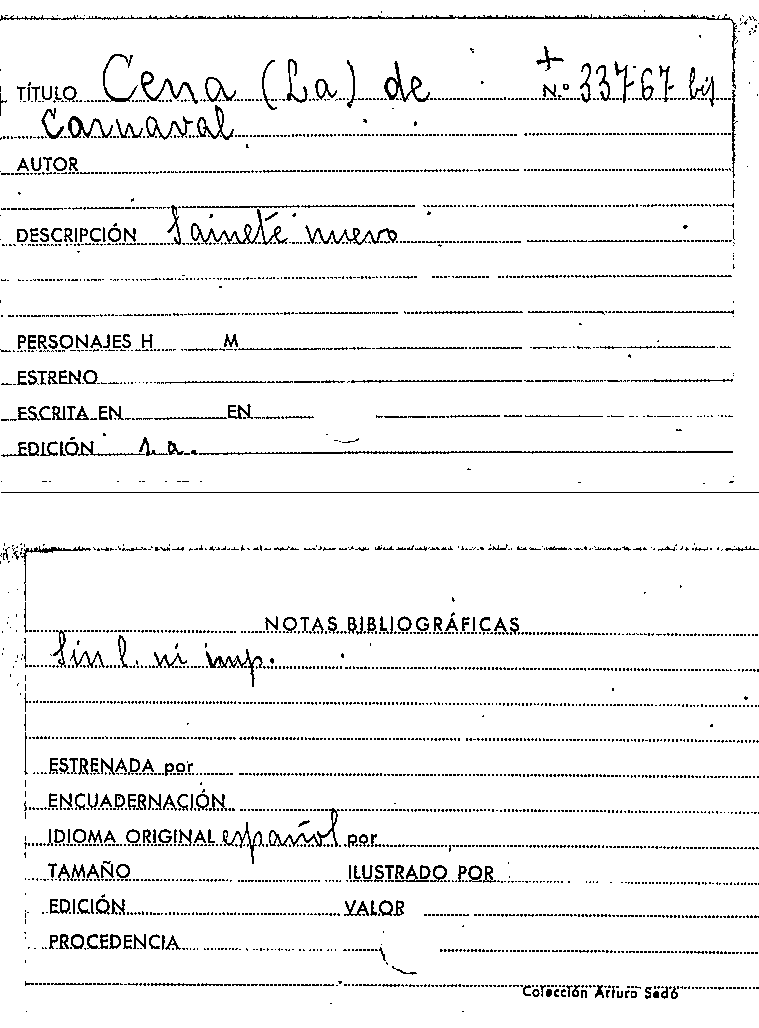 TÍTULO Cena (La) de + N.º 33767 bis
Carnaval
AUTOR
DESCRIPCIÓN Sainete nuevo
PERSONAJES H M
ESTRENO
ESCRITA EN EN
EDICIÓN s. a.
NOTAS BIBLIOGRÁFICAS
Sin l. ni imp.
ESTRENADA por
ENCUADERNACIÓN
IDIOMA ORIGINAL español por
TAMAÑO ILUSTRADO POR
EDICIÓN VALOR
PROCEDENCIA
Colección Arturo Sedó